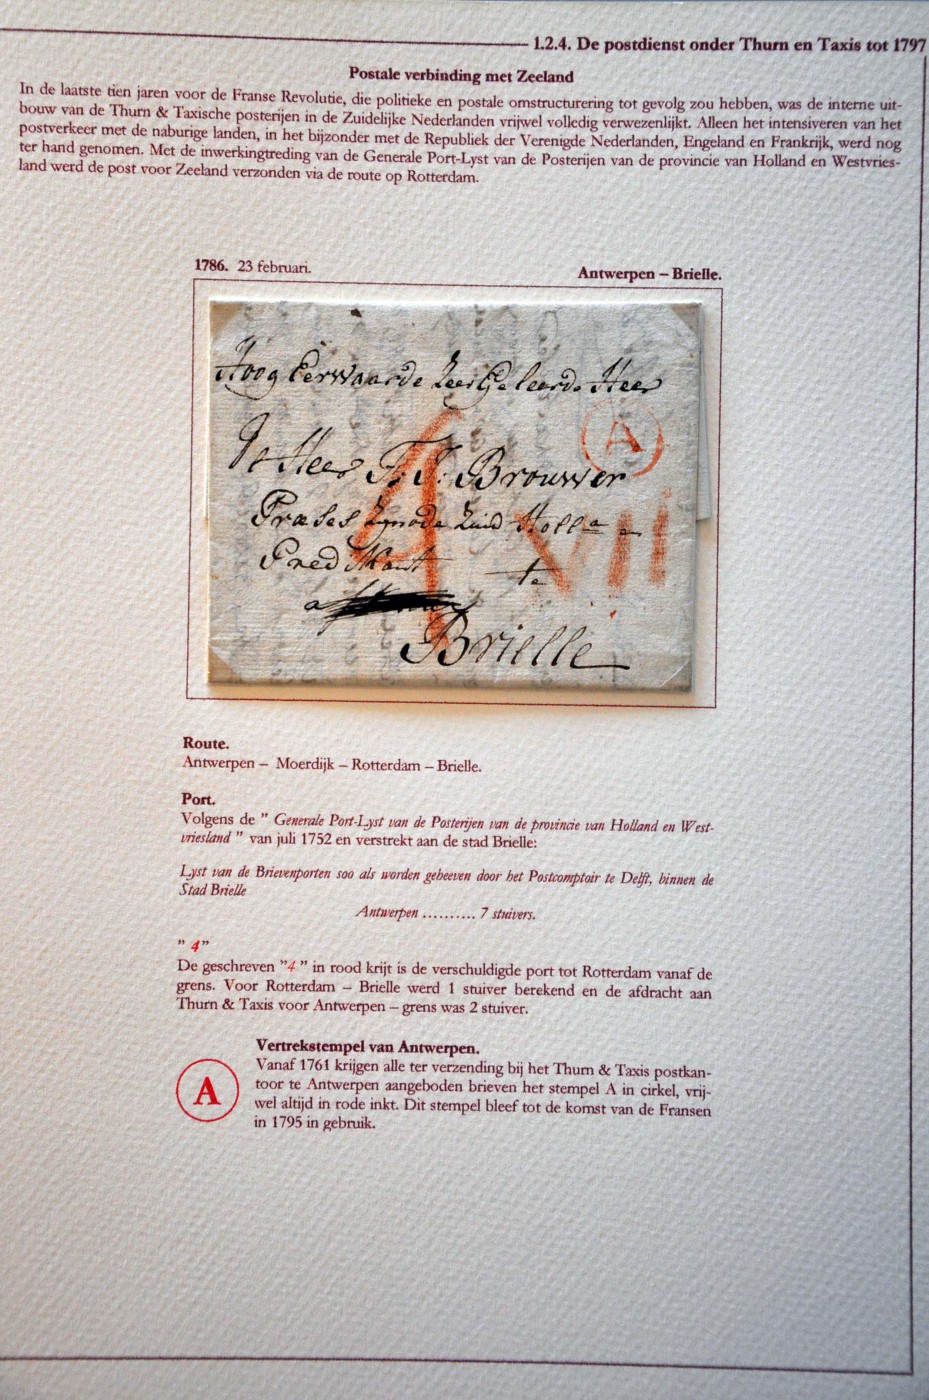 1.2.4. De postdienst onder Thurn en Taxis tot 1797
Postale verbinding met Zeeland
In de laatste tien jaren voor de Franse Revolutie, die politieke en postale omstructurering tot gevolg zou hebben, was de interne uit-
bouw van de Thurn & Taxische posterijen in de Zuidelijke Nederlanden vrijwel volledig verwezenlijkt. Alleen het intensiveren van het
postverkeer met de naburige landen, in het bijzonder met de Republiek der Verenigde Nederlanden, Engeland en Frankrijk, werd nog
ter hand genomen. Met de inwerkingtreding van de Generale Port-Lyst van de Posterijen van de provincie van Holland en Westvries-
land werd de post voor Zeeland verzonden via de route op Rotterdam.
1786. 23 februari.
Antwerpen – Brielle.
Hoog Eerwaarde Zeer Geleerde Heer
A
De Heer F. J. Brouwer
4
Præses Synode Zuid Holla
VII
Predikant te
a
Brielle
Route.
Antwerpen – Moerdijk – Rotterdam – Brielle.
Port.
Volgens de " Generale Port-Lyst van de Posterijen van de provincie van Holland en West-
vriesland " van juli 1752 en verstrekt aan de stad Brielle:
Lyst van de Brievenporten soo als worden geheeven door het Postcomptoir te Delft, binnen de
Stad Brielle
Antwerpen .......... 7 stuivers.
" 4"
De geschreven "4 " in rood krijt is de verschuldigde port tot Rotterdam vanaf de
grens. Voor Rotterdam – Brielle werd 1 stuiver berekend en de afdracht aan
Thurn & Taxis voor Antwerpen – grens was 2 stuiver.
Vertrekstempel van Antwerpen.
Vanaf 1761 krijgen alle ter verzending bij het Thurn & Taxis postkan-
toor te Antwerpen aangeboden brieven het stempel A in cirkel, vrij-
wel altijd in rode inkt. Dit stempel bleef tot de komst van de Fransen
in 1795 in gebruik.
A